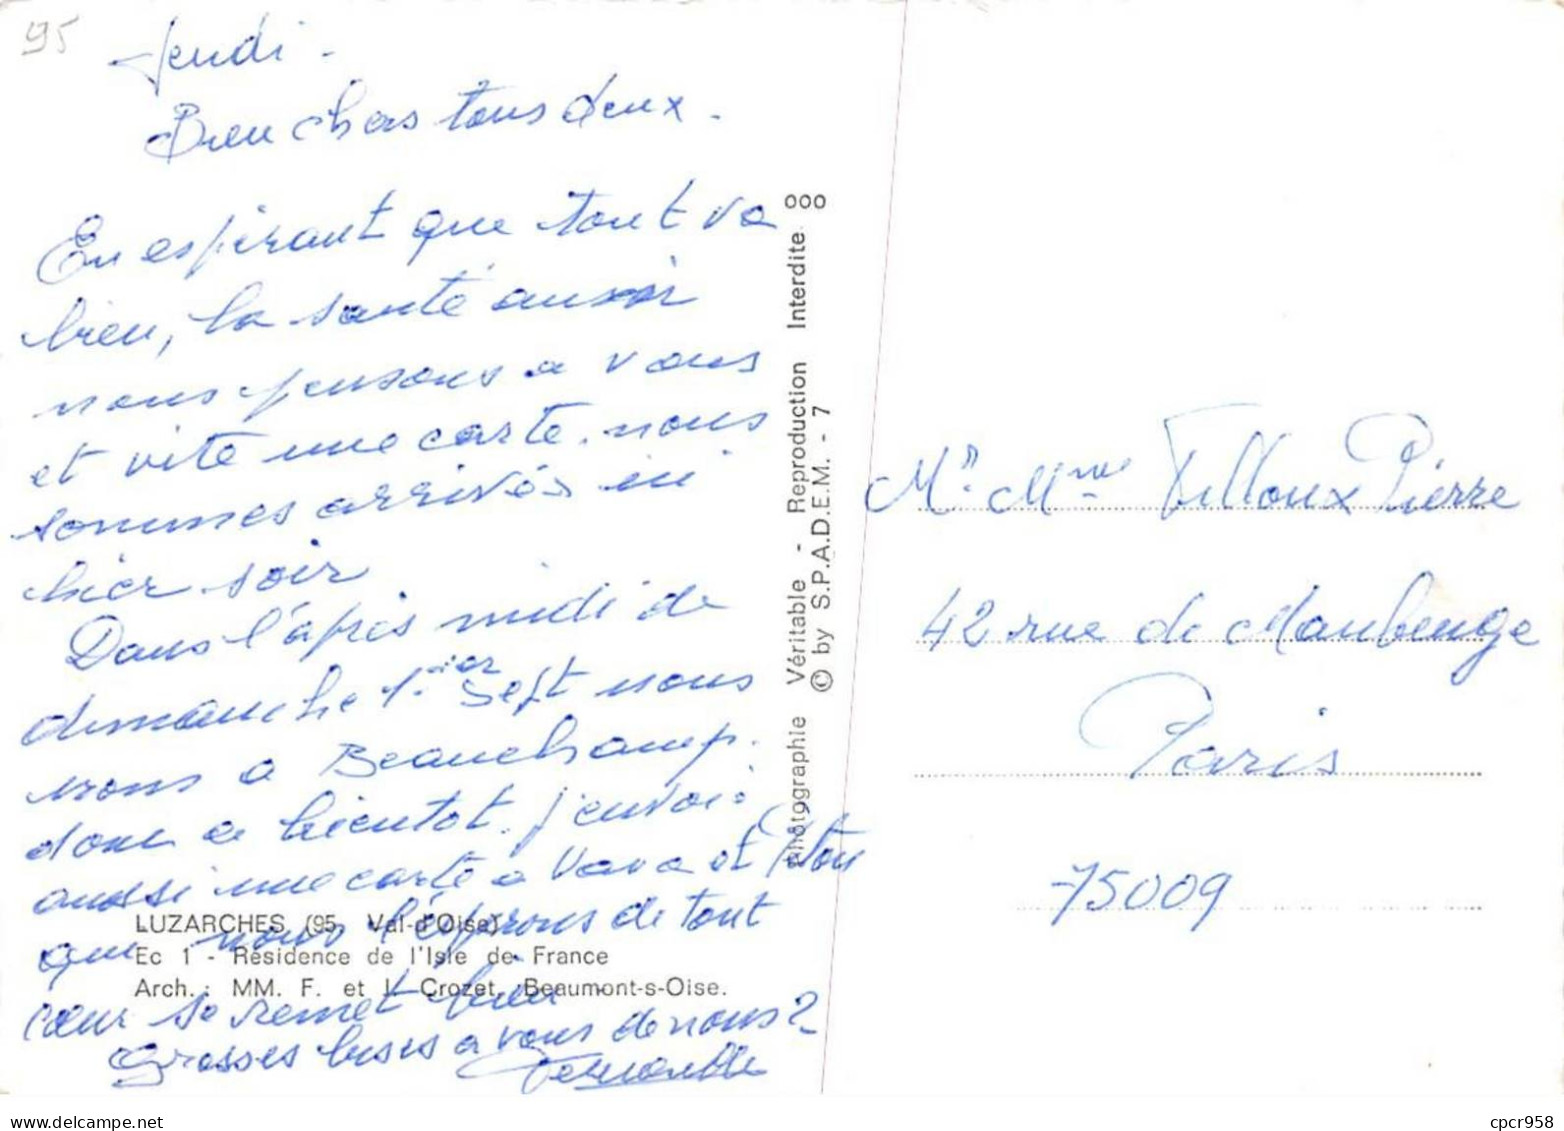 95
Jeudi -
Bien chers tous deux.
En espérant que tout va
bien, la santé aussi
nous pensons a vous
et vite une carte. nous
sommes arrivés ici
hier soir
Dans l'après midi de
dimanche 1.ier Sept nous
irons a Beauchamp.
donc a bientot. j'envoi
aussi une carte a Vava et
que nous l'éspérons de tout
cœur se remet bien
Grosses bises a vous de nous 2
Fernande
LUZARCHES (95. Val-d'Oise)
Ec 1 - Résidence de l'Isle de France
Arch. : MM. F. et J. Crozet, Beaumont-s-Oise.
photographie Véritable - Reproduction Interdite 000
© by S.P.A.D.E.M. - 7 8
Mr. Mme Filloux Pierre
42 rue de Maubeuge
Paris
75009
www.delcampe.net
cpcr958